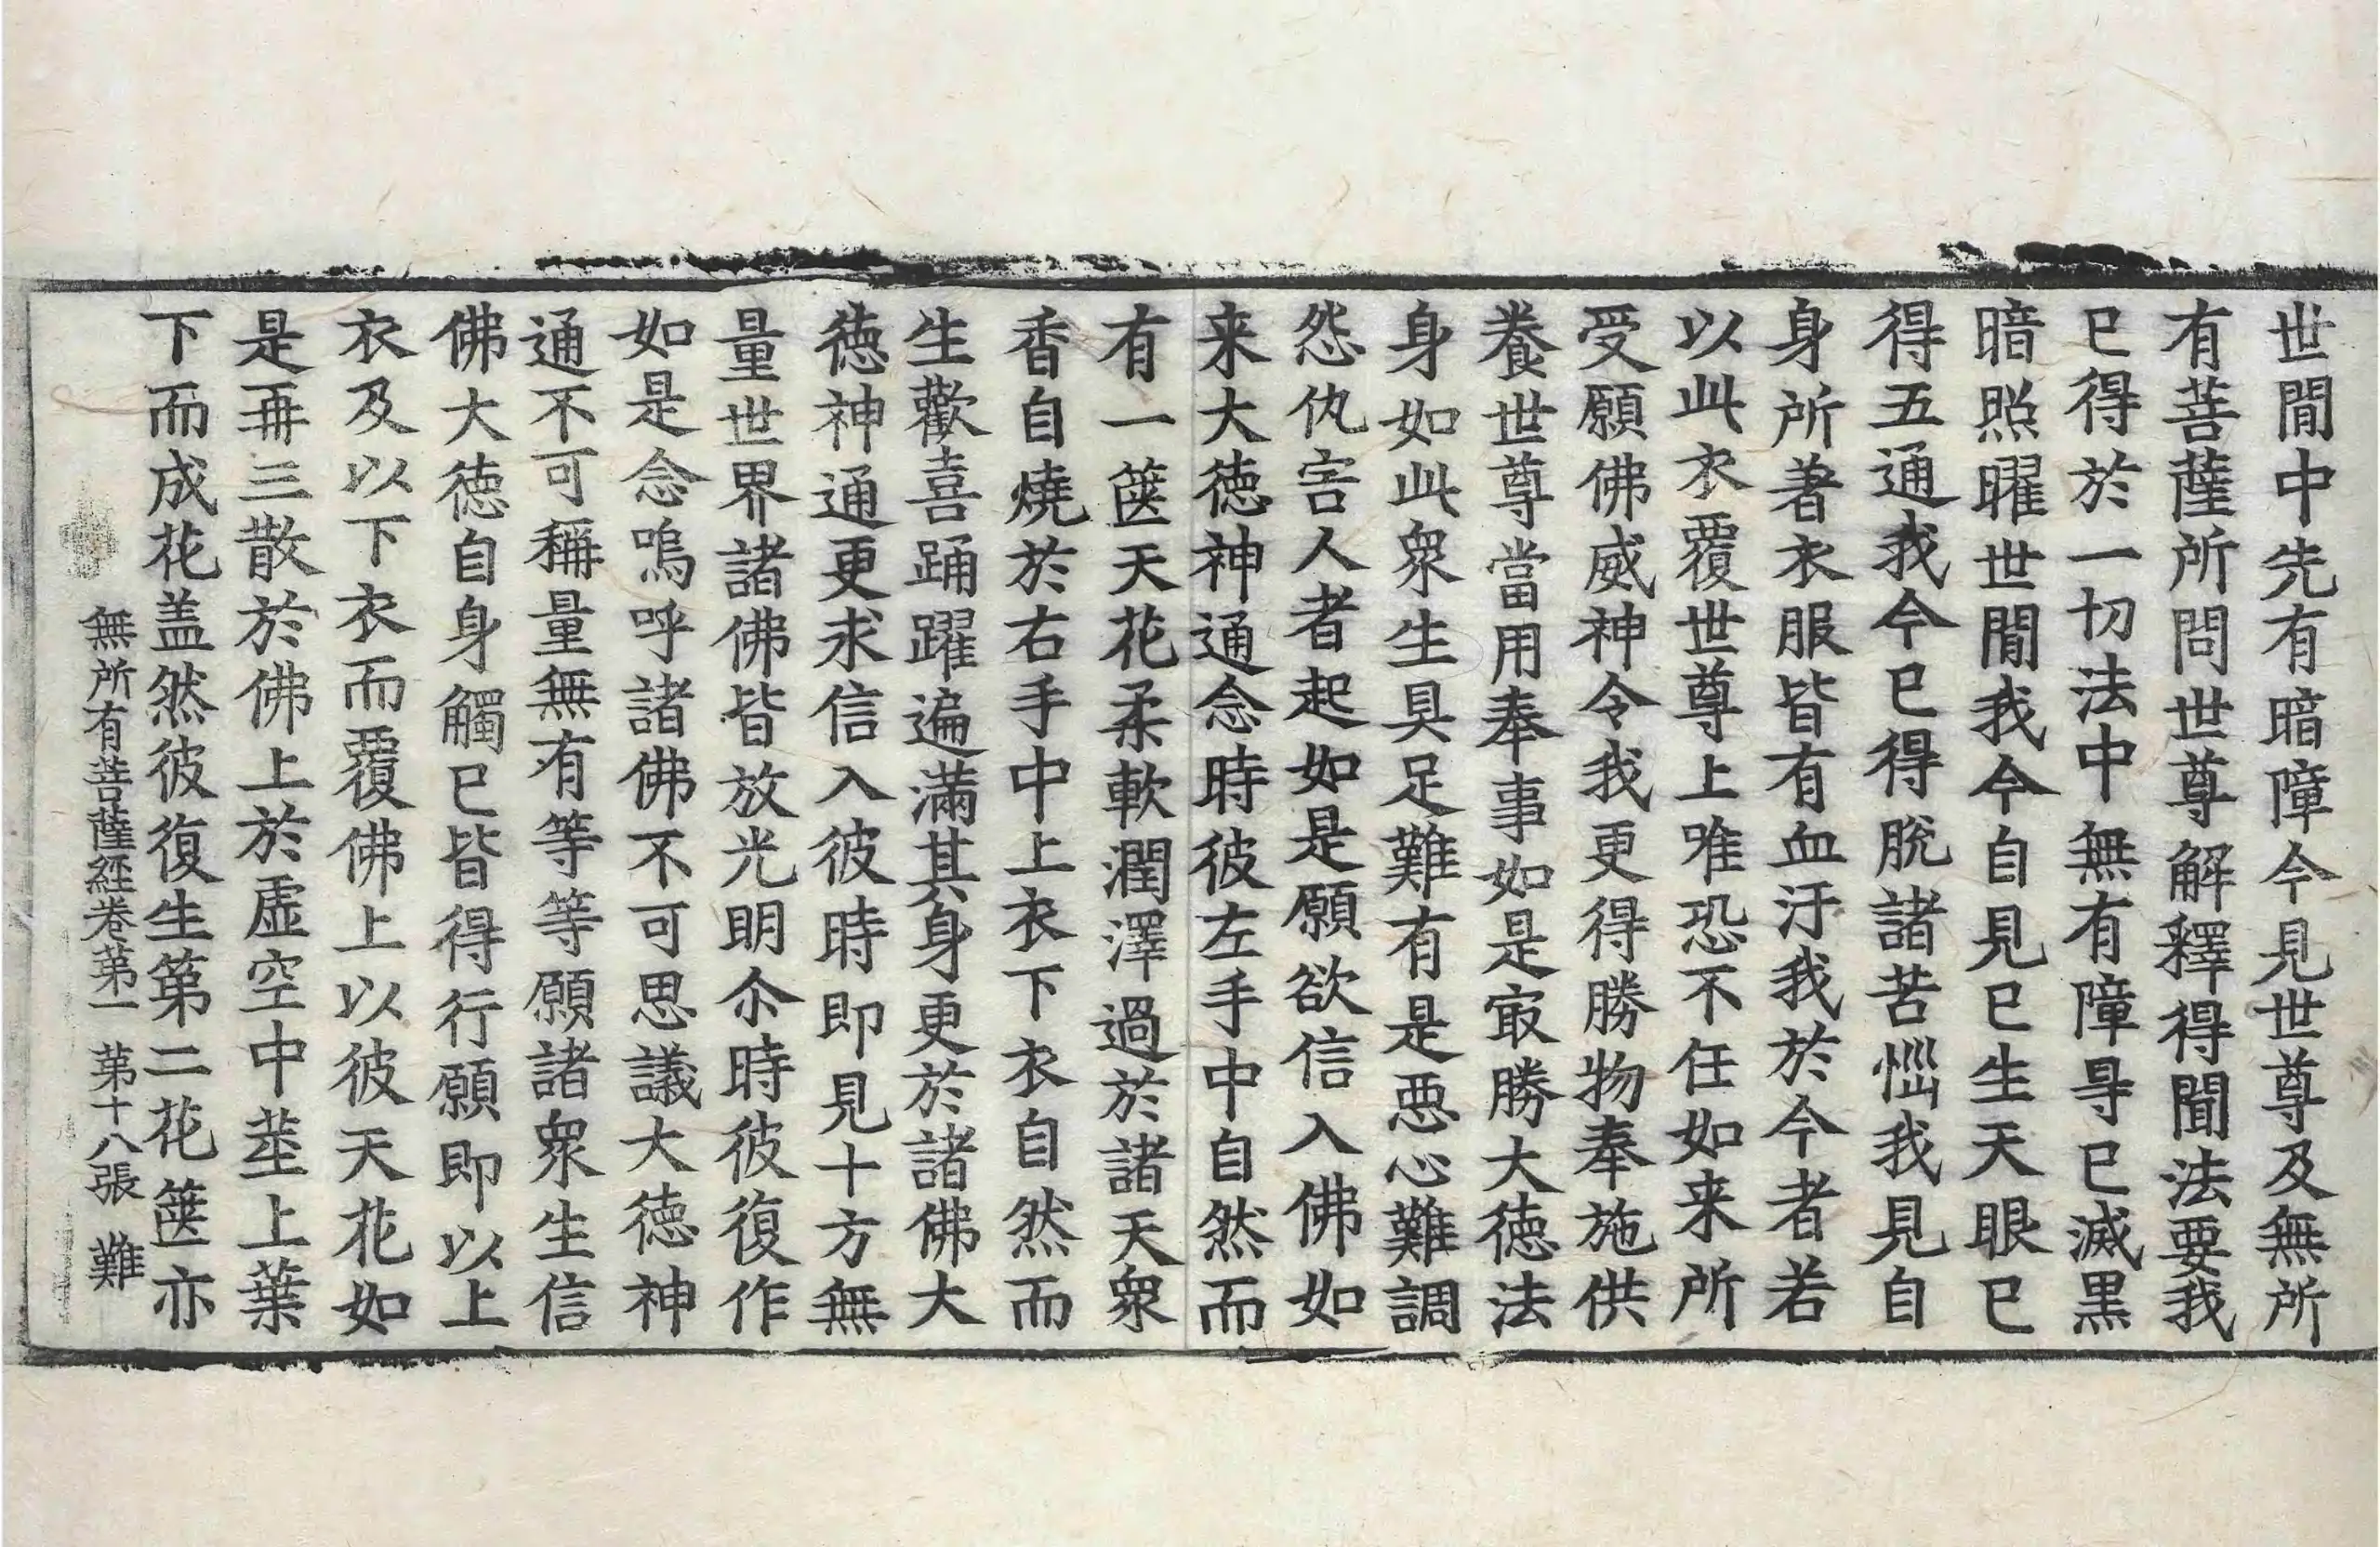 世閒中先有暗障今見世尊及無所
有菩薩所問世尊解釋得聞法要我
已得於一切法中無有障㝵已滅黒
暗照曜世閒我今自見已生天眼已
得五通我今已得脫諸苦惱我見自
身所著衣服皆有血汙我於今者若
以此衣覆世尊上唯恐不任如来所
受願佛威神令我更得勝物奉施供
養世尊當用奉事如是㝡勝大德法
身如此衆生具足難有是惡心難調
怨仇害人者起如是願欲信入佛如
来大德神通念時彼左手中自然而
有一篋天花柔軟潤澤過於諸天衆
香自燒於右手中上衣下衣自然而
生歡喜踊躍遍滿其身更於諸佛大
德神通更求信入彼時即見十方無
量世界諸佛皆放光明尒時彼復作
如是念嗚呼諸佛不可思議大德神
通不可稱量無有等等願諸衆生信
佛大德自身觸已皆得行願即以上
衣及以下衣而覆佛上以彼天花如
是再三散於佛上於虛空中莖上葉
下而成花盖然彼復生第二花篋亦
無所有菩薩經卷第一 第十八張 難